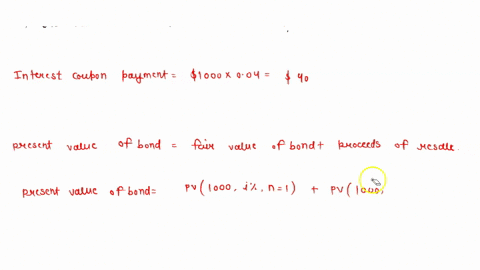 Interest coupon payment = $1000 × 0.04 = $ 40
present value of bond = fair value of bond + proceeds of resale
present value of bond = PV(1000, i%, n=1) + PV(1000,